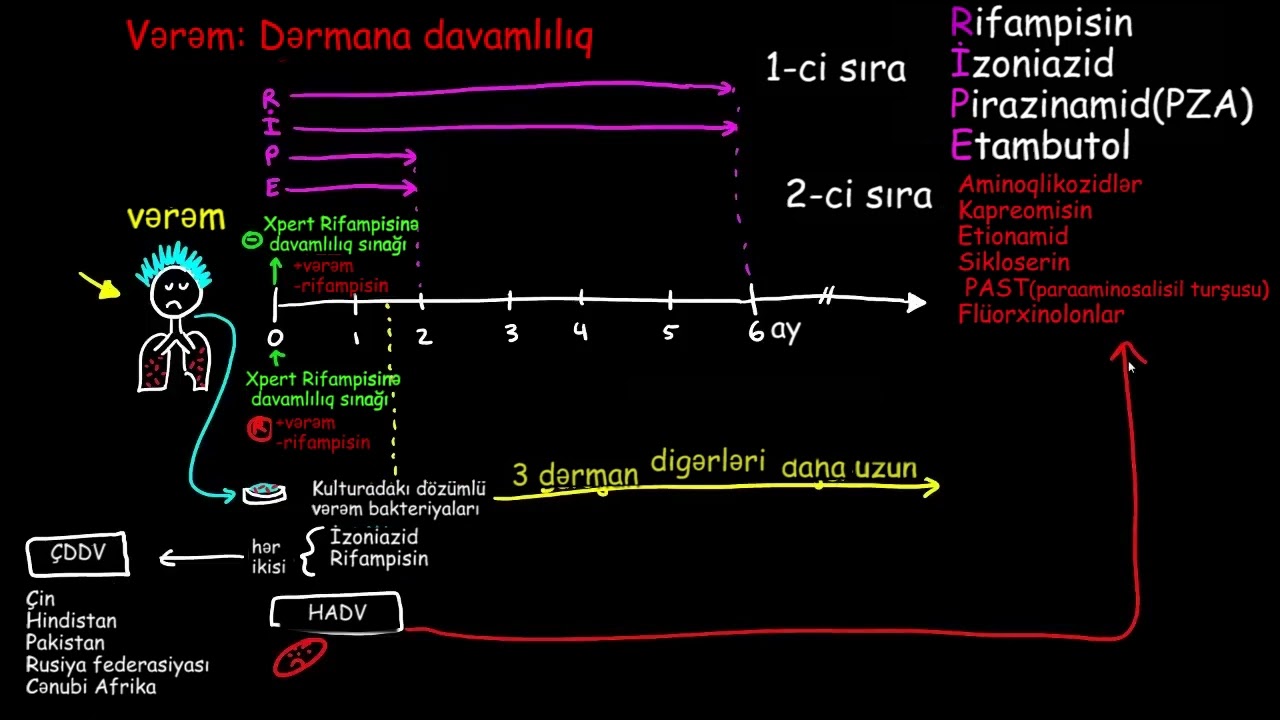 Vərəm: Dərmana davamlılıq
1-ci sıra
Rifampisin
İzoniazid
Pirazinamid(PZA)
Etambutol
2-ci sıra
Aminoqlikozidlər
Kapreomisin
Etionamid
Sikloserin
PAST(paraaminosalisil turşusu)
Flüorxinolonlar
R
İ
P
E
vərəm
Xpert Rifampisinə
davamlılıq sınağı
+vərəm
-rifampisin
0 1 2 3 4 5 6 ay
Xpert Rifampisinə
davamlılıq sınağı
R +vərəm
-rifampisin
3 dərman digərləri daha uzun
Kulturadakı dözümlü
vərəm bakteriyaları
İzoniazid
Rifampisin
hər
ikisi
ÇDDV
Çin
Hindistan
Pakistan
Rusiya federasiyası
Cənubi Afrika
HADV